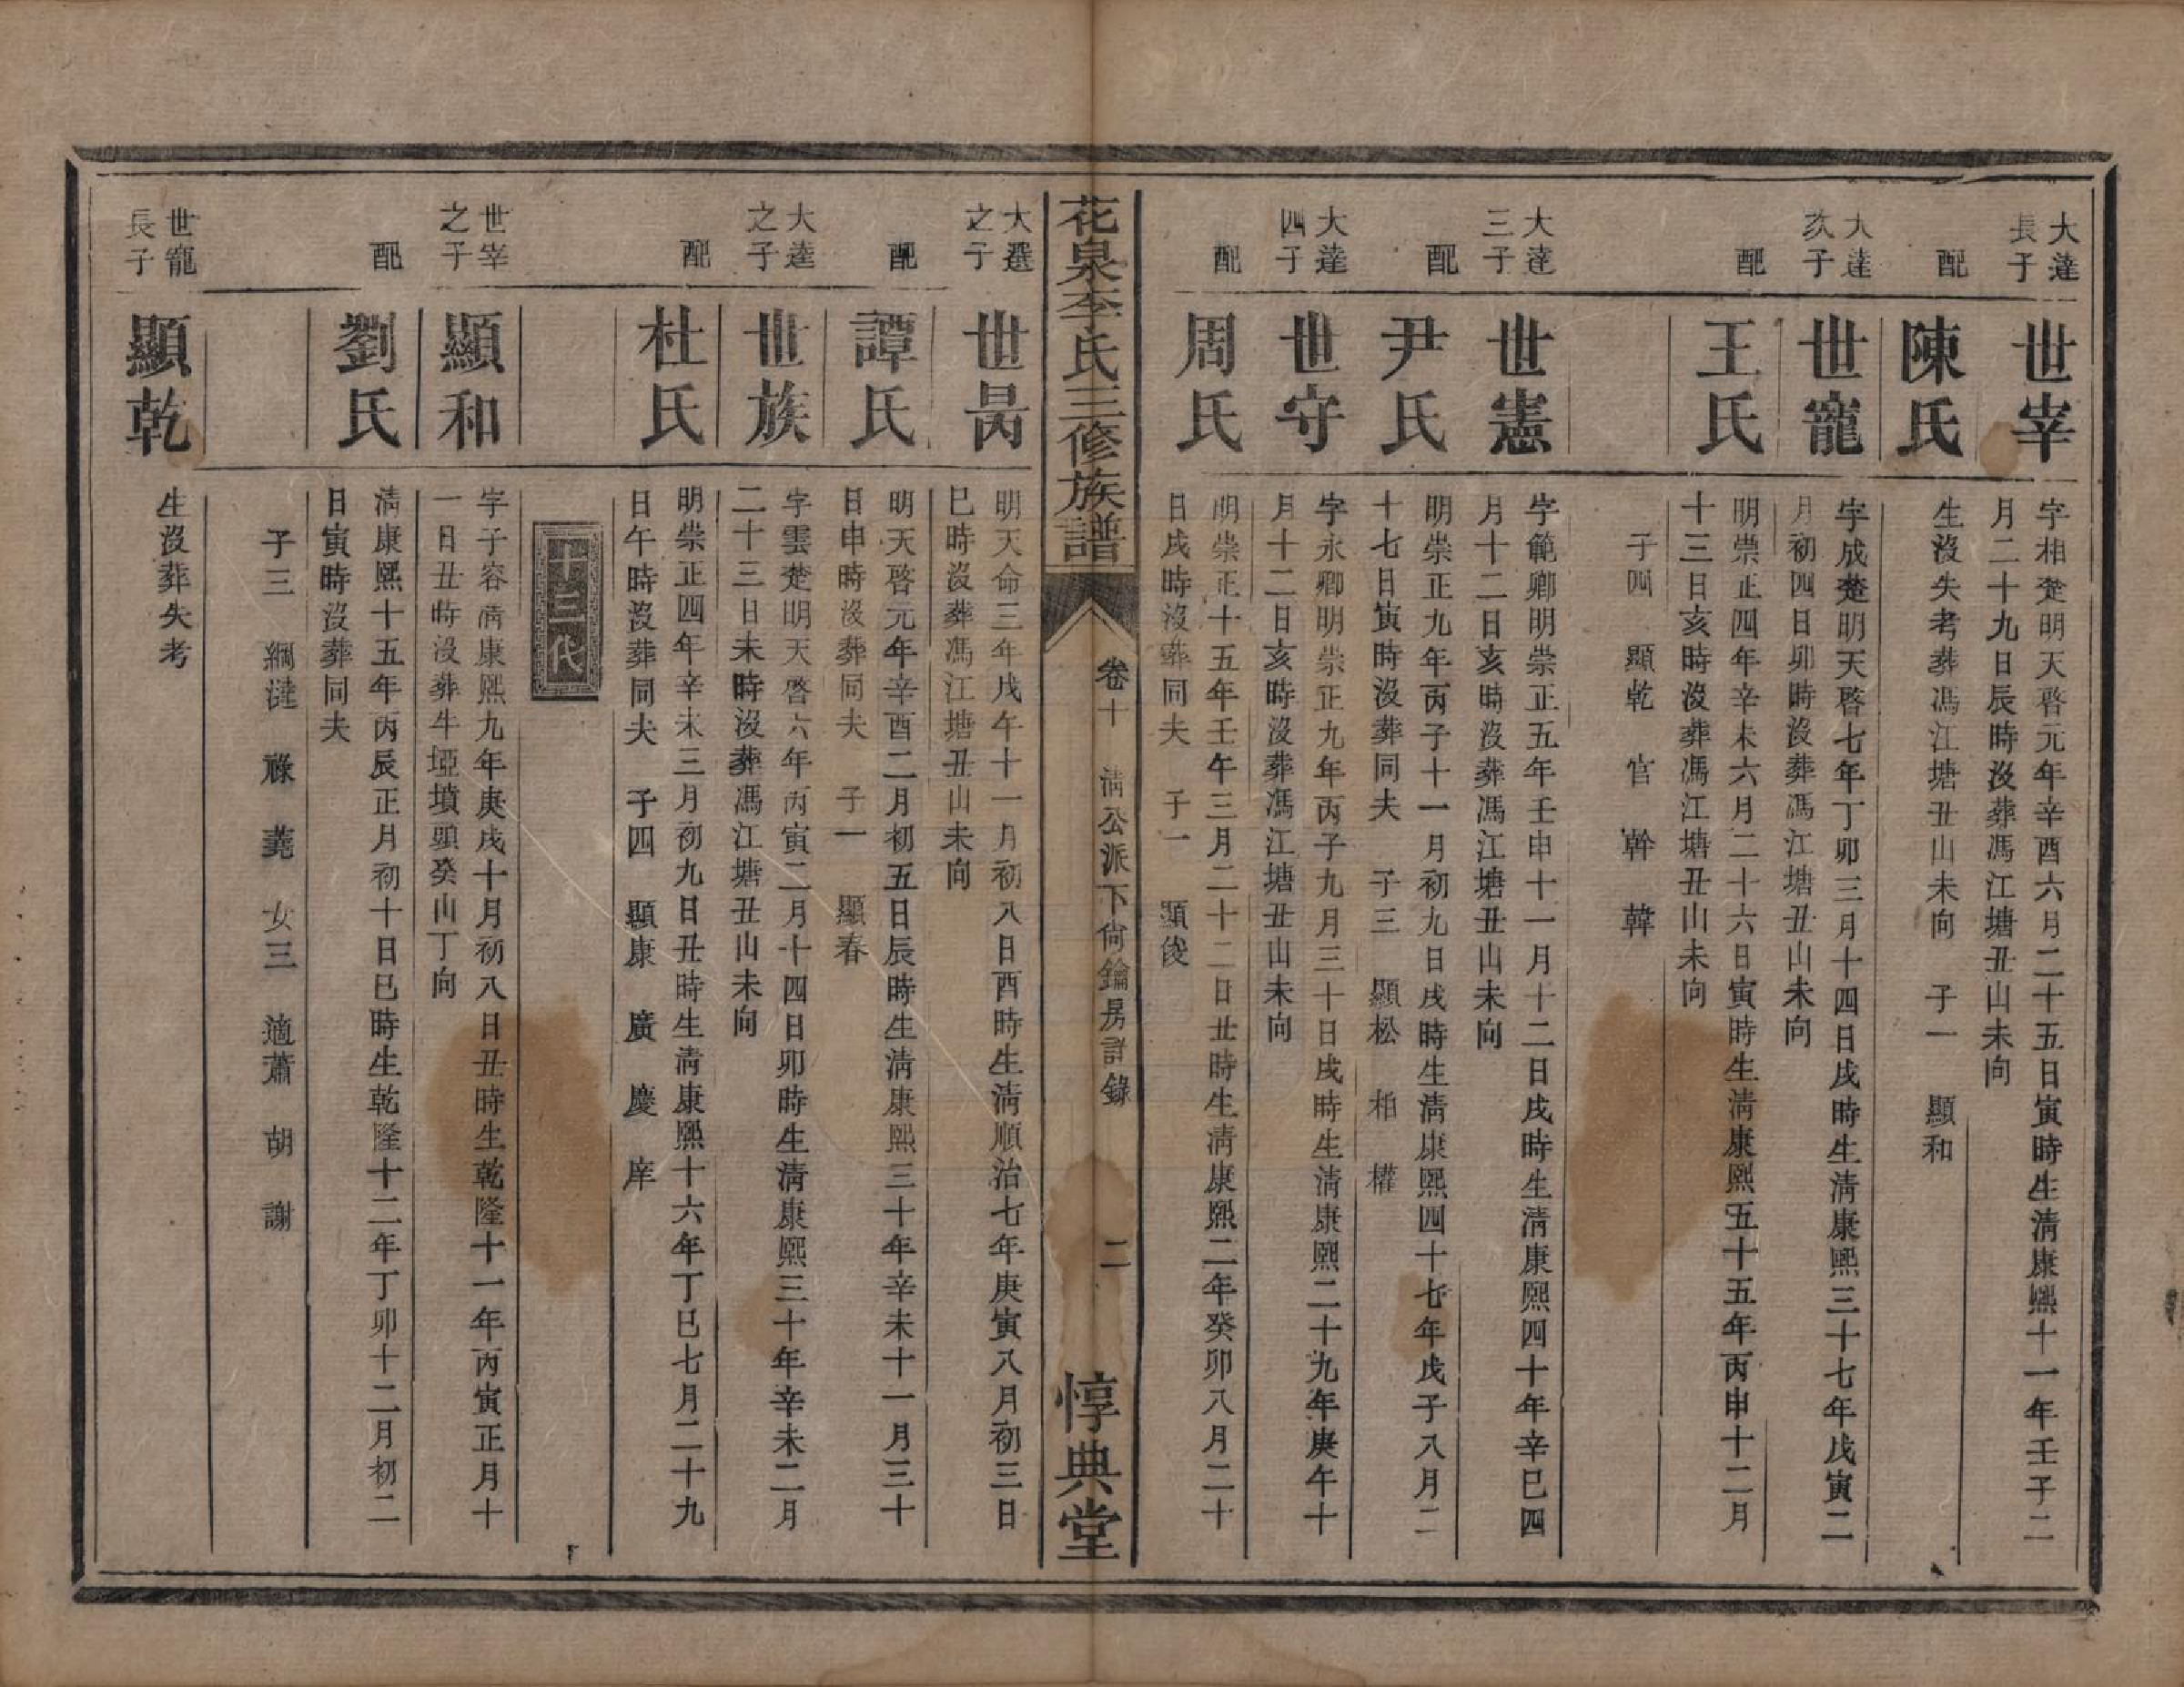 大達
長子
世宰
字相楚明天啓元年辛酉六月二十五日寅時生清康熙十一年壬子二
月二十九日辰時沒葬馮江塘丑山未向
配
陳氏
生沒失考葬馮江塘丑山未向 子一 顯和
大達
次子
世寵
字成楚明天啓七年丁卯三月十四日戌時生清康熙三十七年戊寅二
月初四日卯時沒葬馮江塘丑山未向
配
王氏
明崇正四年辛未六月二十六日寅時生清康熙五十五年丙申十二月
十三日亥時沒葬馮江塘丑山未向
子四 顯乾 官 幹 韓
大達
三子
世憲
字範卿明崇正五年壬申十一月十二日戌時生清康熙四十年辛巳四
月十二日亥時沒葬馮江塘丑山未向
配
尹氏
明崇正九年丙子十一月初九日戌時生清康熙四十七年戊子八月二
十七日寅時沒葬同夫 子三 顯松 栢 權
大達
四子
世守
字永卿明崇正九年丙子九月三十日戌時生清康熙二十九年庚午十
月十二日亥時沒葬馮江塘丑山未向
配
周氏
明崇正十五年壬午三月二十二日丑時生清康熙二年癸卯八月二十
日戌時沒葬同夫 子一 顯俊
花泉李氏三修族譜
卷十 清公派下尙鑰房詳錄 二
惇典堂
大選
之子
世昺
明天命三年戊午十一月初八日酉時生清順治七年庚寅八月初三日
巳時沒葬馮江塘丑山未向
配
譚氏
明天啓元年辛酉二月初五日辰時生清康熙三十年辛未十一月三十
日申時沒葬同夫 子一 顯春
大逵
之子
世族
字雲楚明天啓六年丙寅二月十四日卯時生清康熙三十年辛未二月
二十三日未時沒葬馮江塘丑山未向
配
杜氏
明崇正四年辛未三月初九日丑時生清康熙十六年丁巳七月二十九
日午時沒葬同夫 子四 顯康 廣 慶 庠
十二代
世宰
之子
顯和
字子容清康熙九年庚戌十月初八日丑時生乾隆十一年丙寅正月十
一日丑時沒葬牛埡墳頭癸山丁向
配
劉氏
清康熙十五年丙辰正月初十日巳時生乾隆十二年丁卯十二月初二
日寅時沒葬同夫
子三 綱漣 祿 蕘 女三 適蕭 胡 謝
世寵
長子
顯乾
生沒葬失考